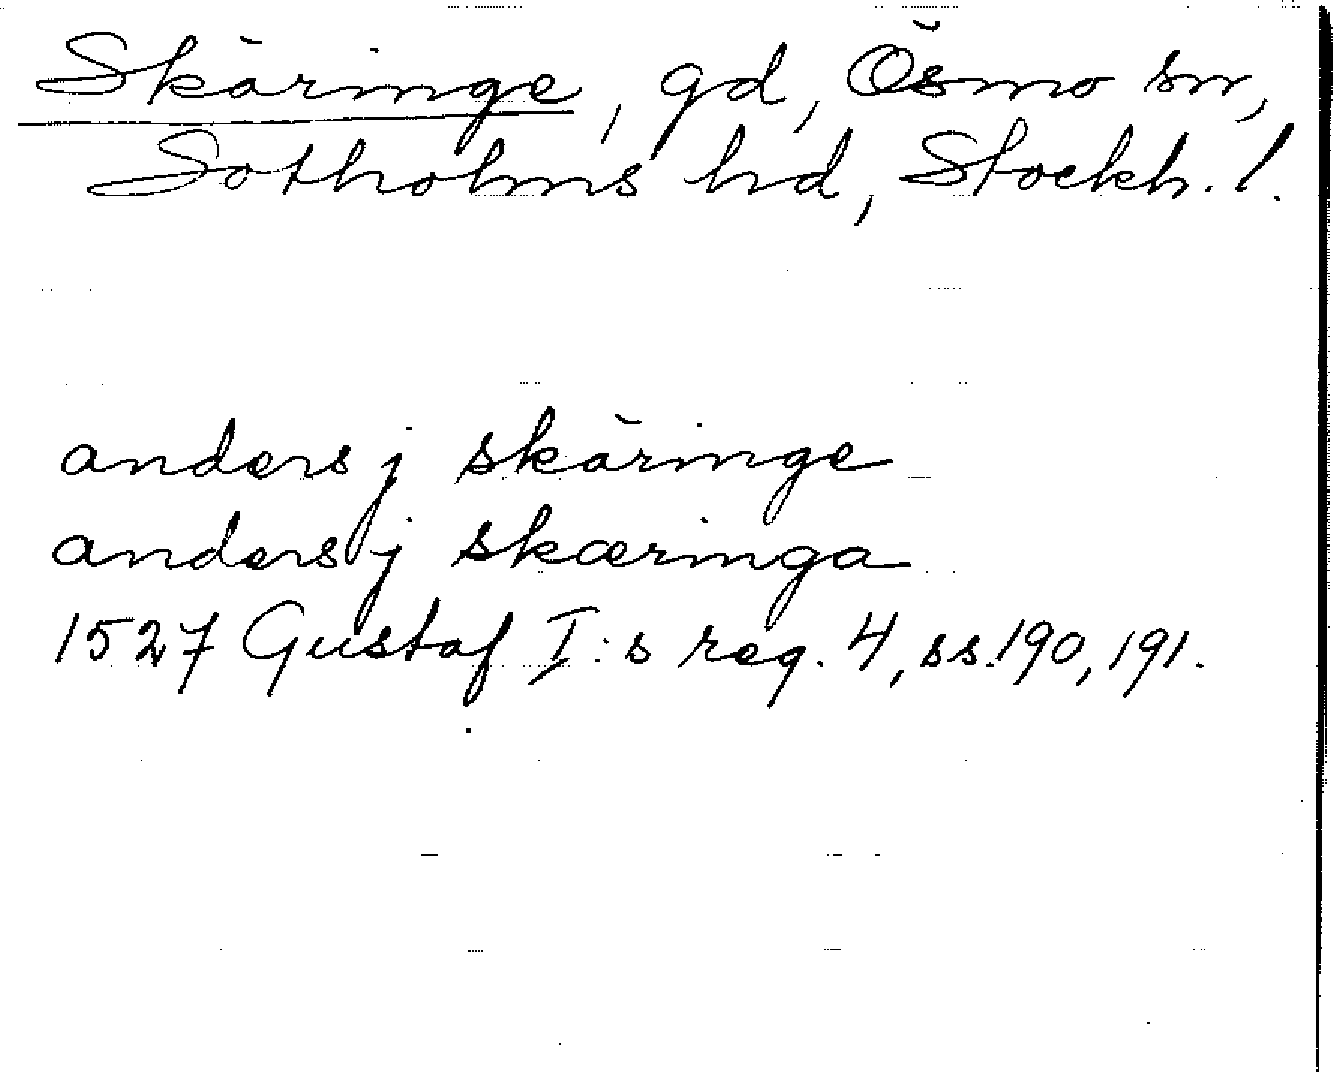 Skäringe, gd, Ösmo sn,
Sotholms hd, Stockh. l.
anders j skäringe
anders j skæringa
1527 Gustaf I:s reg. 4, ss. 190, 191.